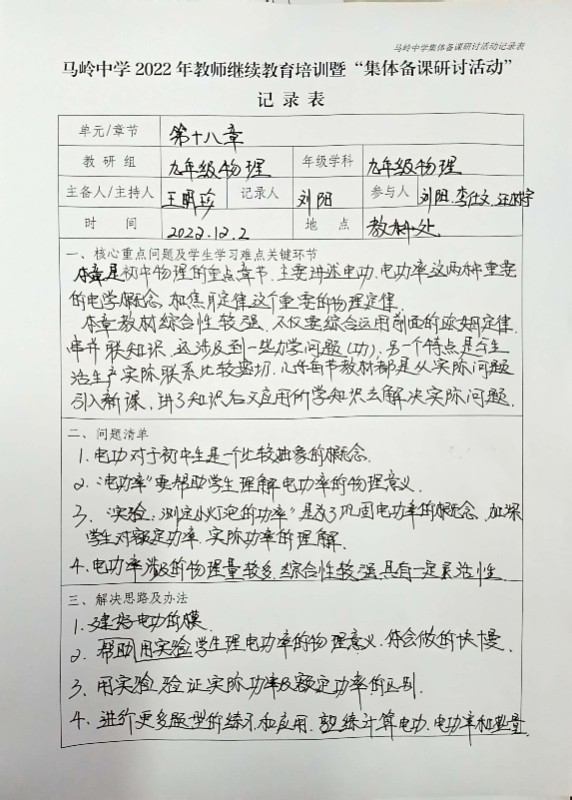 马岭中学集体备课研讨活动记录表
马岭中学 2022 年教师继续教育培训暨“集体备课研讨活动”
记 录 表
单元/章节 第十八章
教 研 组 九年级物理 年级学科 九年级物理
主备人/主持人 王明珍 记录人 刘阳 参与人 刘阳.李仕文.
时 间 2022.12.2 地 点 教科处
一、核心重点问题及学生学习难点关键环节
本章是初中物理的重点章节.主要讲述电功.电功率这两种重要
的电学概念.和焦耳定律这个重要的物理定律.
本章教材综合性较强.不仅要综合运用前面的欧姆定律.
串并联知识.还涉及到一些力学问题(功).另一个特点是与生
活生产实际联系比较密切.几乎每节教材都是从实际问题
引入新课.讲了知识后又应用所学知识去解决实际问题.
二、问题清单
1.电功对于初中生是一个比较抽象的概念.
2.“电功率”要帮助学生理解电功率的物理意义.
3.“实验:测定小灯泡的功率”是为了巩固电功率的概念.加深
学生对额定功率.实际功率的理解.
4.电功率涉及的物理量较多.综合性较强.具有一定灵活性.
三、解决思路及办法
1.建好电功的模
2.帮助用实验学生理电功率的物理意义.符会做的快慢.
3.用实验验证实际功率及额定功率的区别.
4.进行更多题型的练习和应用.熟练计算电功.电功率和热量